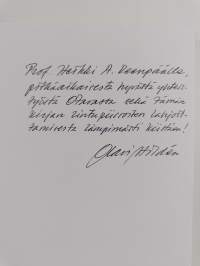 Prof. Heikki A. Reenpäälle,
pitkäaikaisesta hyvästä yhteis-
työstä Otavassa sekä tämän
kirjan lintupiirrosten lahjoit-
tamisesta lämpimästi kiittäen!
Olavi Hildén